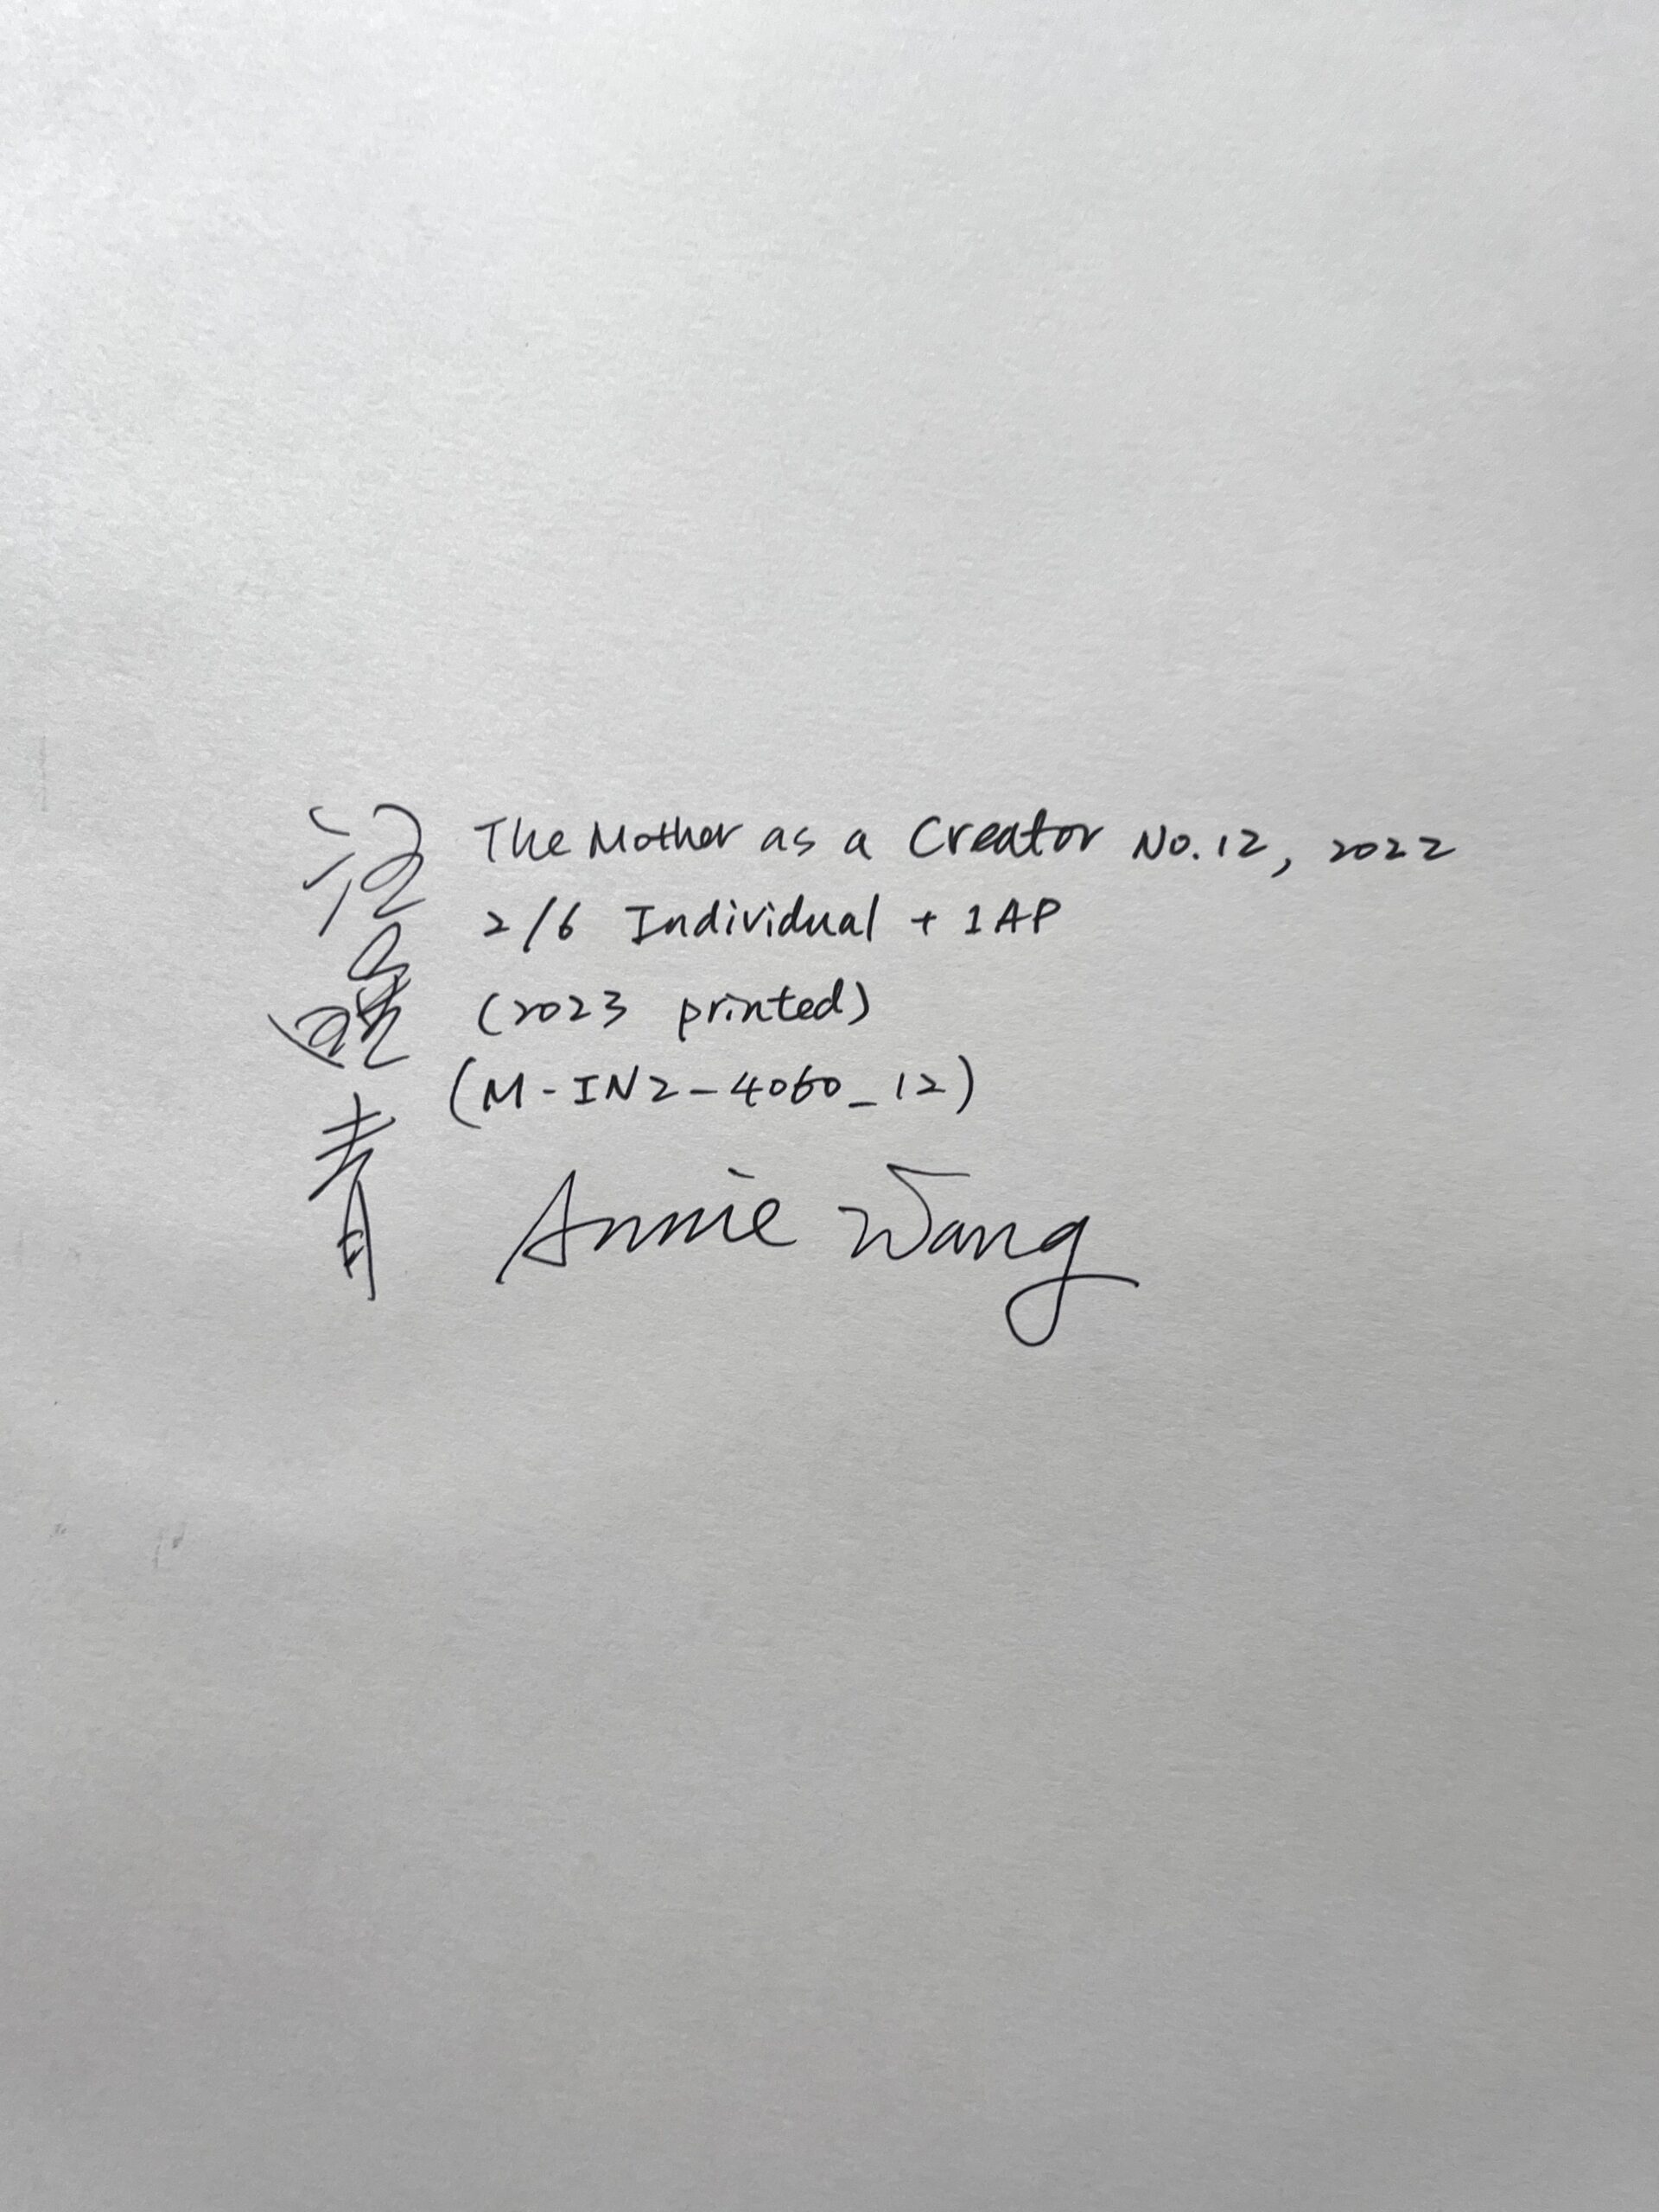 汪曉青
The Mother as a Creator No.12, 2022
2/6 Individual + 1AP
(2023 printed)
(M-IN2-4060_12)
Annie Wang